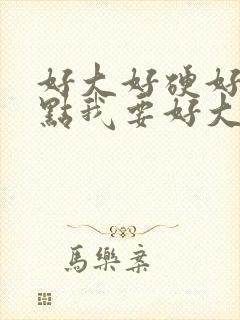 好大好硬好
點我要好大
馬樂案